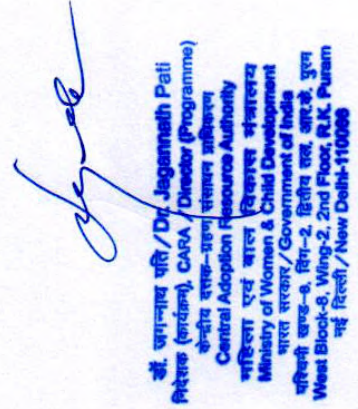 डॉ. जगन्नाथ पति / Dr. Jagannath Pati
निदेशक (कार्यक्रम), CARA / Director (Programme)
केन्द्रीय दत्तक-ग्रहण संसाधन प्राधिकरण
Central Adoption Resource Authority
महिला एवं बाल विकास मंत्रालय
Ministry of Women & Child Development
भारत सरकार / Government of India
पश्चिमी खण्ड-8, विंग-2, द्वितीय तल, आर.के. पुरम
West Block-8, Wing-2, 2nd Floor, R.K. Puram
नई दिल्ली / New Delhi-110066